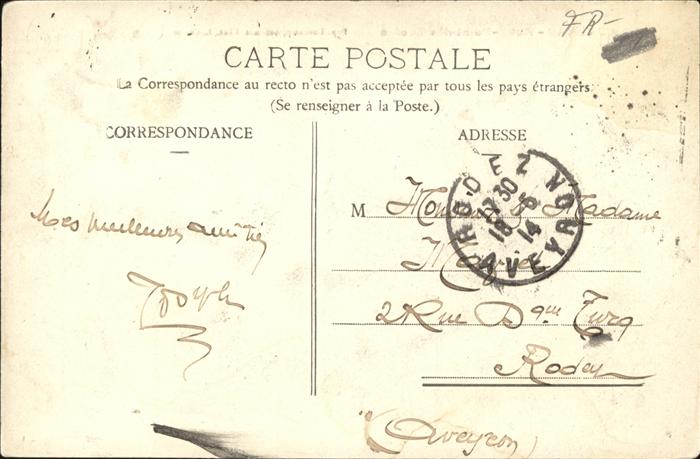 FR-
CARTE POSTALE
La Correspondance au recto n'est pas acceptée par tous les pays étrangers
(Se renseigner à la Poste.)
CORRESPONDANCE
Mes meilleures amitiés
Joseph
ADRESSE
M Madame
2 Rue Dque Turq
Rodez
(Aveyron)
RODEZ
30
18
14
AVEYRON